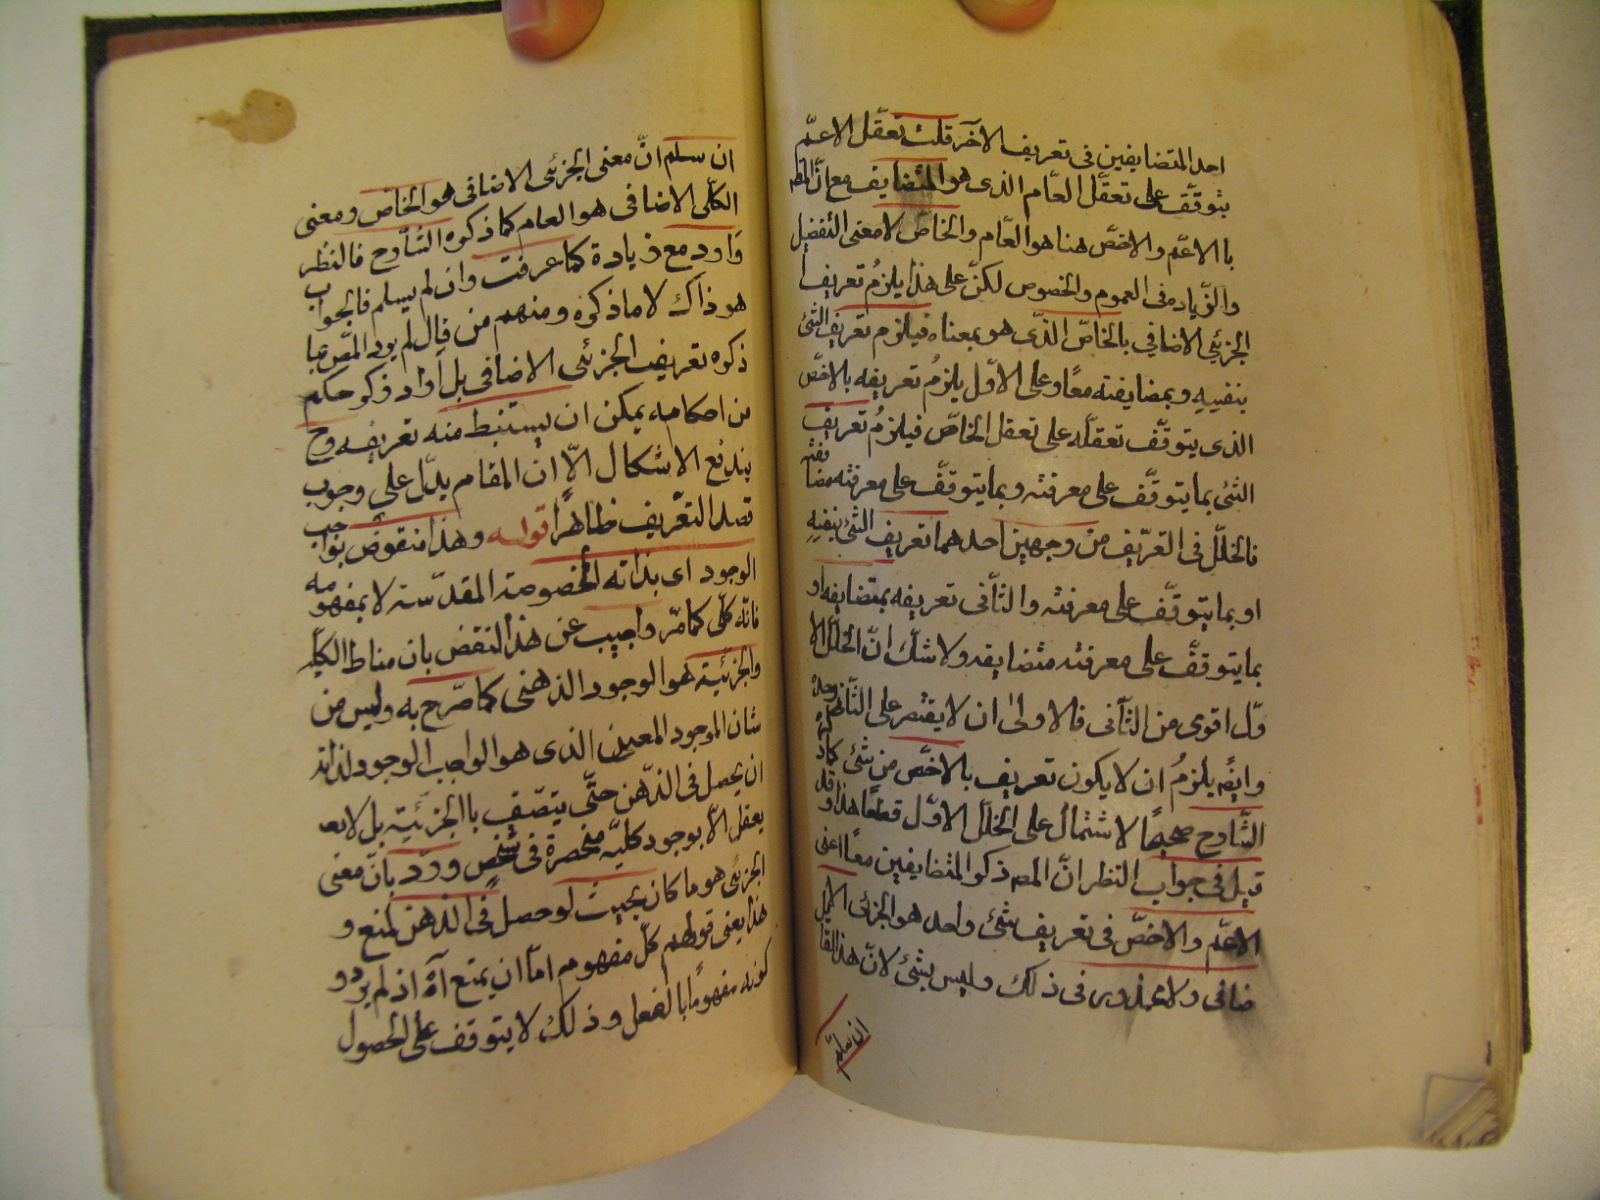 احد المتضايفين فى تعريف الآخر قلت تعقّل الاعمّ
يتوقّف على تعقّل العّام الذى هو المتضايف مع انّ المراد
بالاعمّ والاخصّ هنا هو العّام والخاصّ لا معنى التفضيل
والزّيادة فى العموم والخصوص لكنّ على هذا يلزمُ تعريف
الجزئي الاضافي بالخاصّ الذّى هو بمعناه فيلزم تعريف الشئ
بنفسِهِ وبمضايفته معًا وعلى الاوّل يلزمُ تعريفه بالاخصّ
الذى يتوقّف تعقلّه على تعقل الخاصّ فيلزمُ تعريف
الشئ بما يتوقّف على معرفته وبما يتوقّف على معرفته مضا
يفته
فالخلل فى التعّريف من وجهين احدهما تعريف الشئ بنفسِهِ
او بما يتوقّف على معرفته والثاّنى تعريفه بمتضايفه او
بما يتوقّف على معرفته متضايفه ولا شكّ انّ الخلل الا
وّل اقوى من الثاّنى فالاولىٰ ان لا يقتصر على الثاّنى
وحده
وايضًا يلزمُ ان لا يكون تعريف بالاخصّ من شئ كما ذكره
الشّارح صحيحًا لاشتمال على الخلل الاوّل قطعًا هذا وقد
قيل فى جواب النظر انّ المصـ ذكر المتضايفين معًا اعنى
الاعمّ والاخصّ فى تعريف شئ واحد هو الجزئى الا
ضافى ولا محذور فى ذلك وليس بشئ لانّ هذا القائل
ان سلّم
ان سلم انّ معنى الجزئى الاضافى هو الخاصّ ومعنى
الكلّى الاضافى هو العام كما ذكره الشّارح فالنظر
وارد مع زيادة كما عرفت وان لم يسلم فالجواب
هو ذاك لا ما ذكره ومنهم من قال لم يرد المصّ بما
ذكره تعريف الجزئى الاضافى بل اراد ذكر حكم
من احكامه يمكن ان يستنبط منه تعريفه وح
يندفع الاشكال الاّ انّ المقام يدّل على وجوب
قصد التعّريف ظاهرًا قوله وهذا منقوض بواجب
الوجود اى بذاته المخصوصة المقدّسة لا بمفهومه
فانّه كلّى كما مرّ واجيب عن هذا النقض بان مناط الكليّة
والجزئيّة هو الوجود الذهنى كما صرّح به وليس من
شان الموجود المعين الذى هو الواجب الوجود لذاته
ان يحصل فى الذّهن حتّى يتصّف بالجزئيّة بل لا
يعقل الاّ بوجود كليّه منحصرة فى شخص وردّ بانّ معنى
الجزئى هو ما كان بحيث لو حصل فى الذهن لمنع و
هذا يعنى قولهم كلّ مفهوم امّا ان يمتع آه اذ لم يريدو
كونه مفهومًا بالفعل وذلك لا يتوقف على الحصول